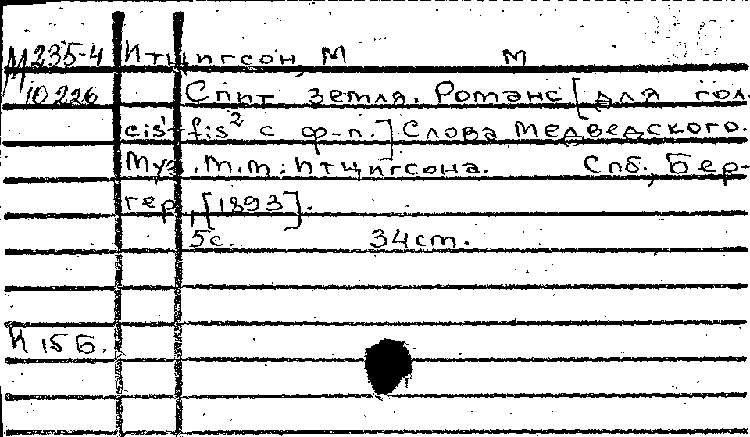 М235-4 Итцигсон, М М
10226 Спит земля. Романс [для гол.
cis¹-fis² с ф-п.] Слова Медведского.
Муз. М.М. Итцигсона. Спб., Бер-
гер, [1893].
5с. 34cm.
К 15 Б.